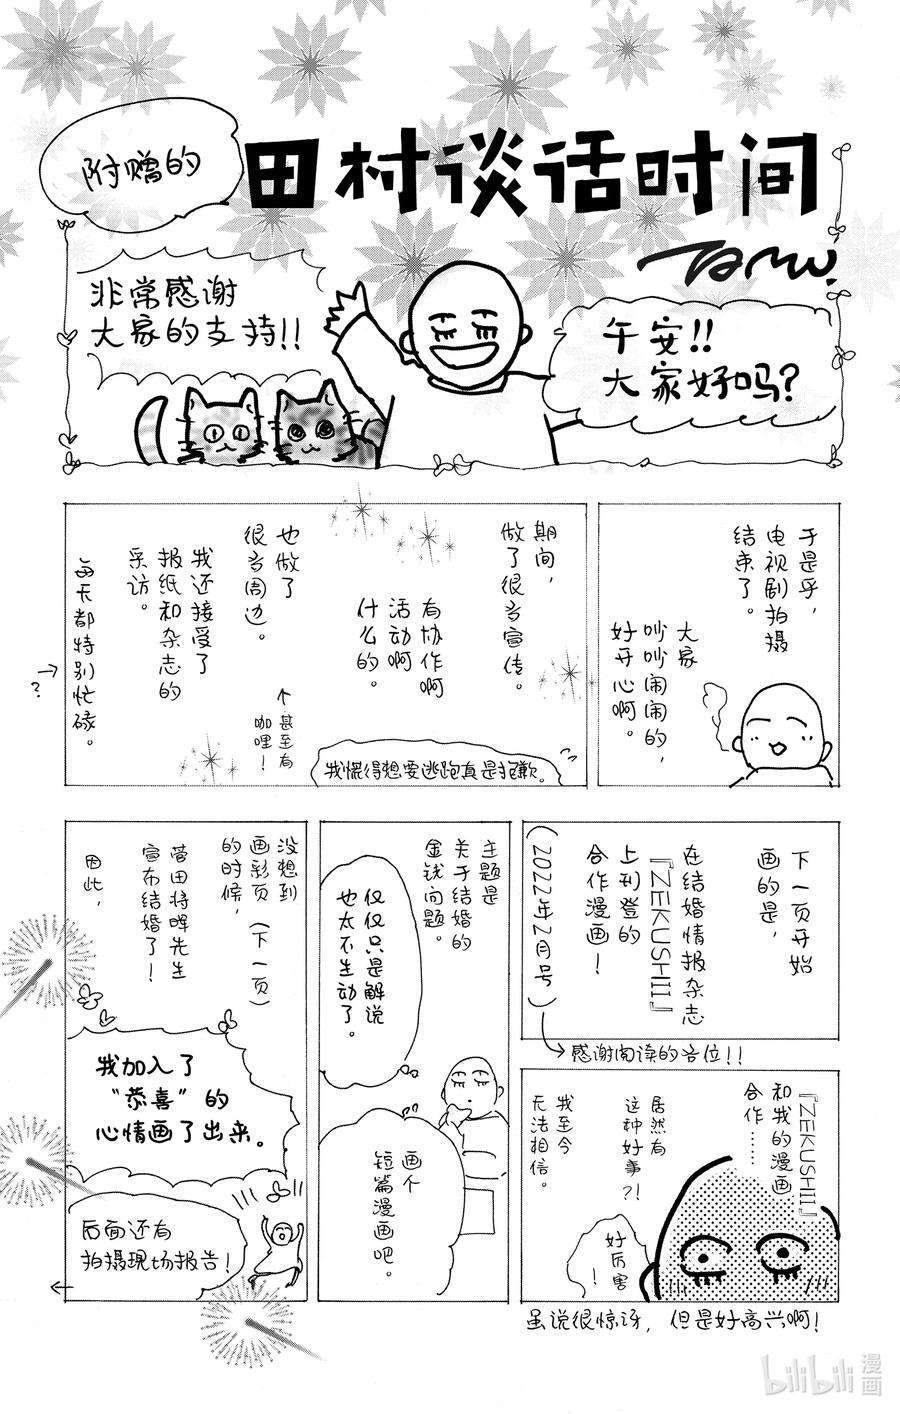 附赠的
田村谈话时间
TAMU.
非常感谢
大家的支持!!
午安!!
大家好吗?
于是乎,
电视剧拍摄
结束了。
大家
吵吵闹闹的,
好开心啊。
期间,
做了很多宣传。
有协作啊
活动啊
什么的。
也做了
很多周边。
↑甚至有
咖哩!
我还接受了
报纸和杂志的
采访。
每天都特别忙碌。
→
?
我慌得想要逃跑真是抱歉。
下一页开始
画的是,
在结婚情报杂志
『ZEKUSHII』
上刊登的
合作漫画!
(2022年2月号)
→感谢阅读的各位!!
『ZEKUSHII』
和我的漫画
合作……
居然有
这种好事?!
我至今
无法相信。
好厉害
!
虽说很惊讶,但是好高兴啊!
主题是
关于结婚的
金钱问题。
仅仅只是解说
也太不生动了。
画个
短篇漫画吧。
没想到
画彩页(下一页)
的时候,
菅田将晖先生
宣布结婚了!
因此,
我加入了
“恭喜”的
心情画了出来。
后面还有
拍摄现场报告!
←
bilibili 漫画